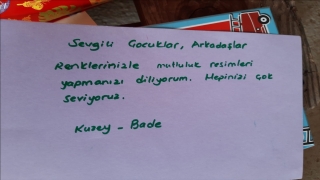 Sevgili Çocuklar, Arkadaşlar
Renklerinizle mutluluk resimleri
yapmanızı diliyorum. Hepinizi çok
seviyoruz.
Kuzey - Bade